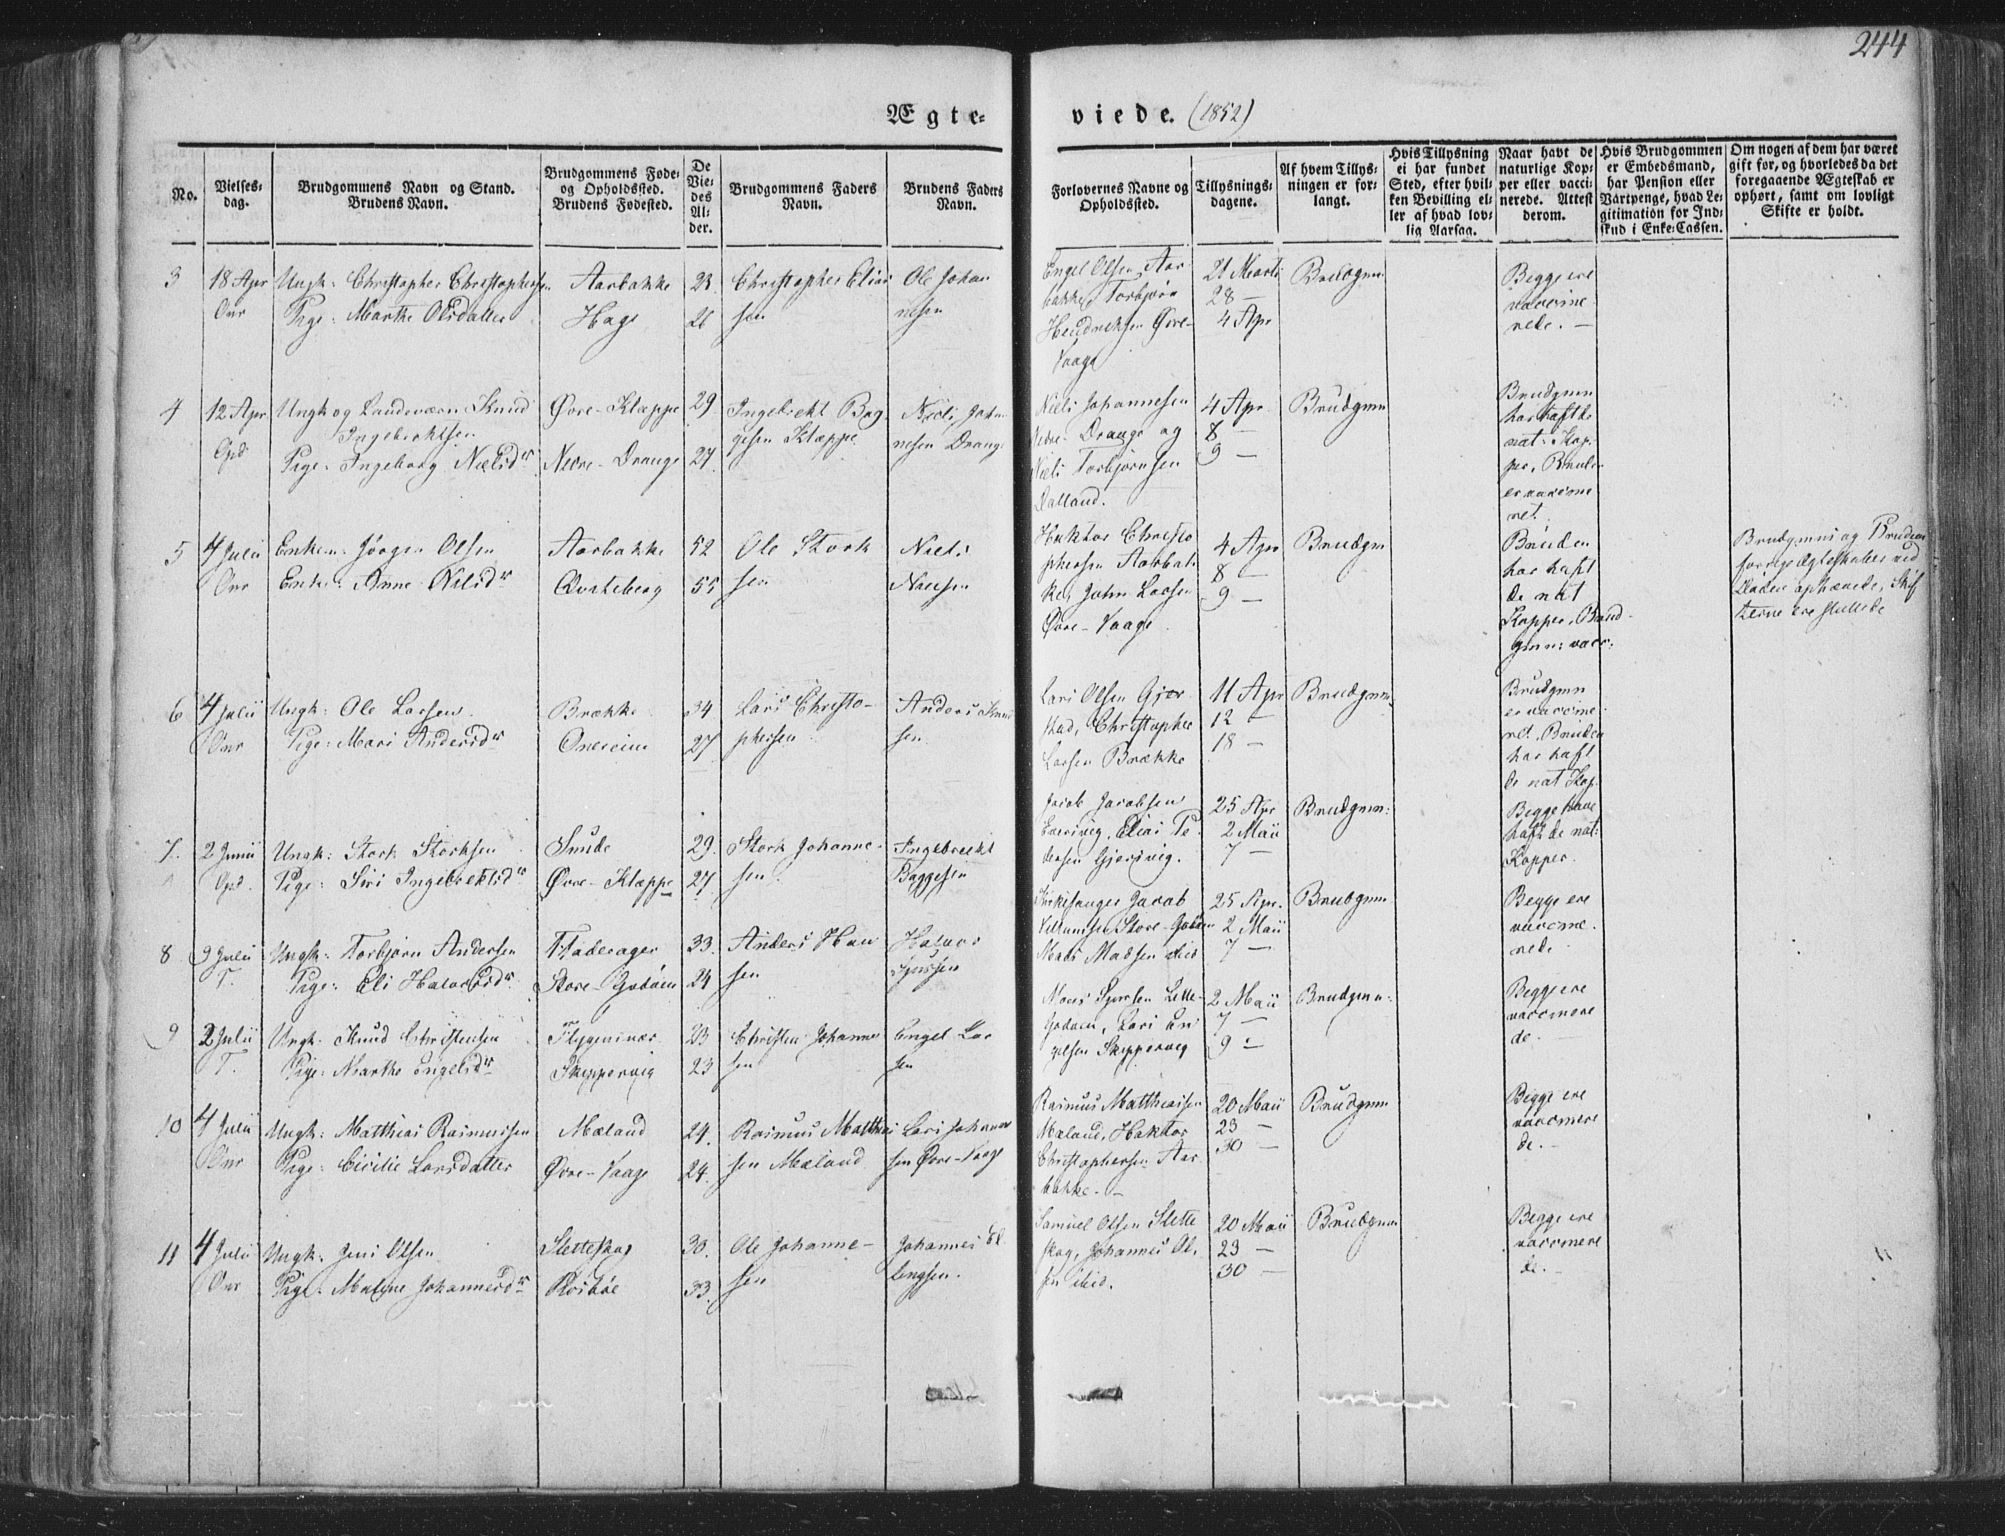 244
Ægte-
viede. (1852)
No.
Vielses-
dag.
Brudgommens Navn og Stand.
Brudens Navn.
Brudgommens Føde-
og Opholdssted.
Brudens Fødested.
De
Vie-
des
Al-
der.
Brudgommens Faders
Navn.
Brudens Faders
Navn.
Forlovernes Navne og
Opholdssted.
Tillysnings-
dagene.
Af hvem Tillys-
ningen er for-
langt.
Hvis Tillysning
ei har fundet
Sted, efter hvil-
ken Bevilling el-
ler af hvad lov-
lig Aarsag.
Naar havt de
naturlige Kop-
per eller vacci-
nerede. Attest
derom.
Hvis Brudgommen
er Embedsmand,
har Pension eller
Vartpenge, hvad Le-
gitimation for Ind-
skud i Enke-Cassen.
Om nogen af dem har været
gift før, og hvorledes da det
foregaaende Ægteskab er
ophørt, samt om lovligt
Skifte er holdt.
3
18 Apr
Ungk: Christopher Christophersen
Pige: Marthe Olsdatter
Aarbakke
Hage
23
26
Christopher Elias
sen
Ole Johan
nesen
Engel Olsen Aar
bakke Torbjørn
Hendriksen Øvre-
Vaage
21 Marti
28 —
4 Apr
Brudgmn
Begge ere
vaccine
rede. —
4
12 Apr
Ungk og Landeværn Knud
Ingebrektsen
Pige: Ingeborg Nielsdr
Øvre-Klæppe
Nedre-Drange
29
27
Ingebrekt Bag
gesen Klæppe
Niels Johan
nesen Drange
Niels Johannesen
Nedre-Drange og
Niels Torbjørnsen
Dalland.
4 Apr
8 —
9 —
Brudgmn
Brudgmn
har haft de
nat: Kop-
per, Bruden
er vaccine
ret.
5
4 Julii
Enkem: Jørgen Olsen
Enke: Anne Nilsdr
Aarbakke
Qvarteberg
52
55
Ole Stork
sen
Niels
Nielsen
Haktor Christo
phersen Aarbak
ke, John Larsen
Øvre-Vaage
4 Apr
8 —
9 —
Brudgmn
Bruden
har haft
de nat
Kopper, Brud-
gmn: vacc:
Brudgmns og Bruden
forrige Ægteskaber ved
Døden ophævede, Skif
terne ere sluttede
6
4 Julii
Ungk: Ole Larsen
Pige: Mari Andersdr
Brække
34
27
Lars Christo-
phersen
Anders Knud
sen
Lars Olsen Gjer
stad, Christopher
Larsen Brække
11 Apr
12 —
18 —
Brudgmn
Brudgmn
er vaccine
ret. Bruden
har haft
de nat Kop.
7.
2 Junii
Ungk: Stork Storksen
Pige: Siri Ingebrektsdr
Snude
Øvre-Klæppe
29.
27
Stork Johanne-
sen
Ingebrekt
Baggesen
Jacob Jacobsen
Eversvig, Elias Pe
dersen Gjersvig.
25 Apr
2 Maii
7 —
Brudgmn:
Begge have
haft de nat:
Kopper.
8
9 Julii
T.
Ungk: Torbjørn Andersen
Pige: Eli Halvorsdr
Flaterager
Store-Godøen
33.
24
Anders Han
sen
Halvor
Sjursen
Kirkesanger Jacob
Store-Godøen
Mads Madsen ibid
25 Apr.
2 Maii
7 —
Brudgmn
Begge ere
vaccine
rede
9
2 Julii
T.
Ungk: Knud Christensen
Pige: Marthe Engelsdr
Flygensvær
Skippervig
23
23
Christen Johanne
sen
Engel Lar
sen
Mons Sjursen Lille-
Godøen, Lars En
gelsen Skippervig
2 Maii
7 —
9 —
Brudgmn:
Begge ere
vaccinere
de. —
10
4 Julii
Ungk: Matthias Rasmussen
Pige: Cicilie Larsdatter
Mæland
Øvre-Vaage
24.
24.
Rasmus Matthias
sen Mæland
Lars Johanne
sen Øvre-Vaage
Rasmus Matthiassen
Mæland, Haktor
Christophersen Aar
bakke. —
20 Maii
23 —
30 —
Brudgmn
Begge ere
vaccinere
de. —
11
4 Julii
Ungk: Jens Olsen
Pige: Malene Johannesdr
Sletteskog
Rosbøe
30.
33.
Ole Johanne-
sen
Johannes El
lingsen.
Samuel Olsen Slette
skog, Johannes Ol.
sen ibid.
20 Maii
23 —
30 —
Brudgmn
Begge ere
vaccinere
de. —